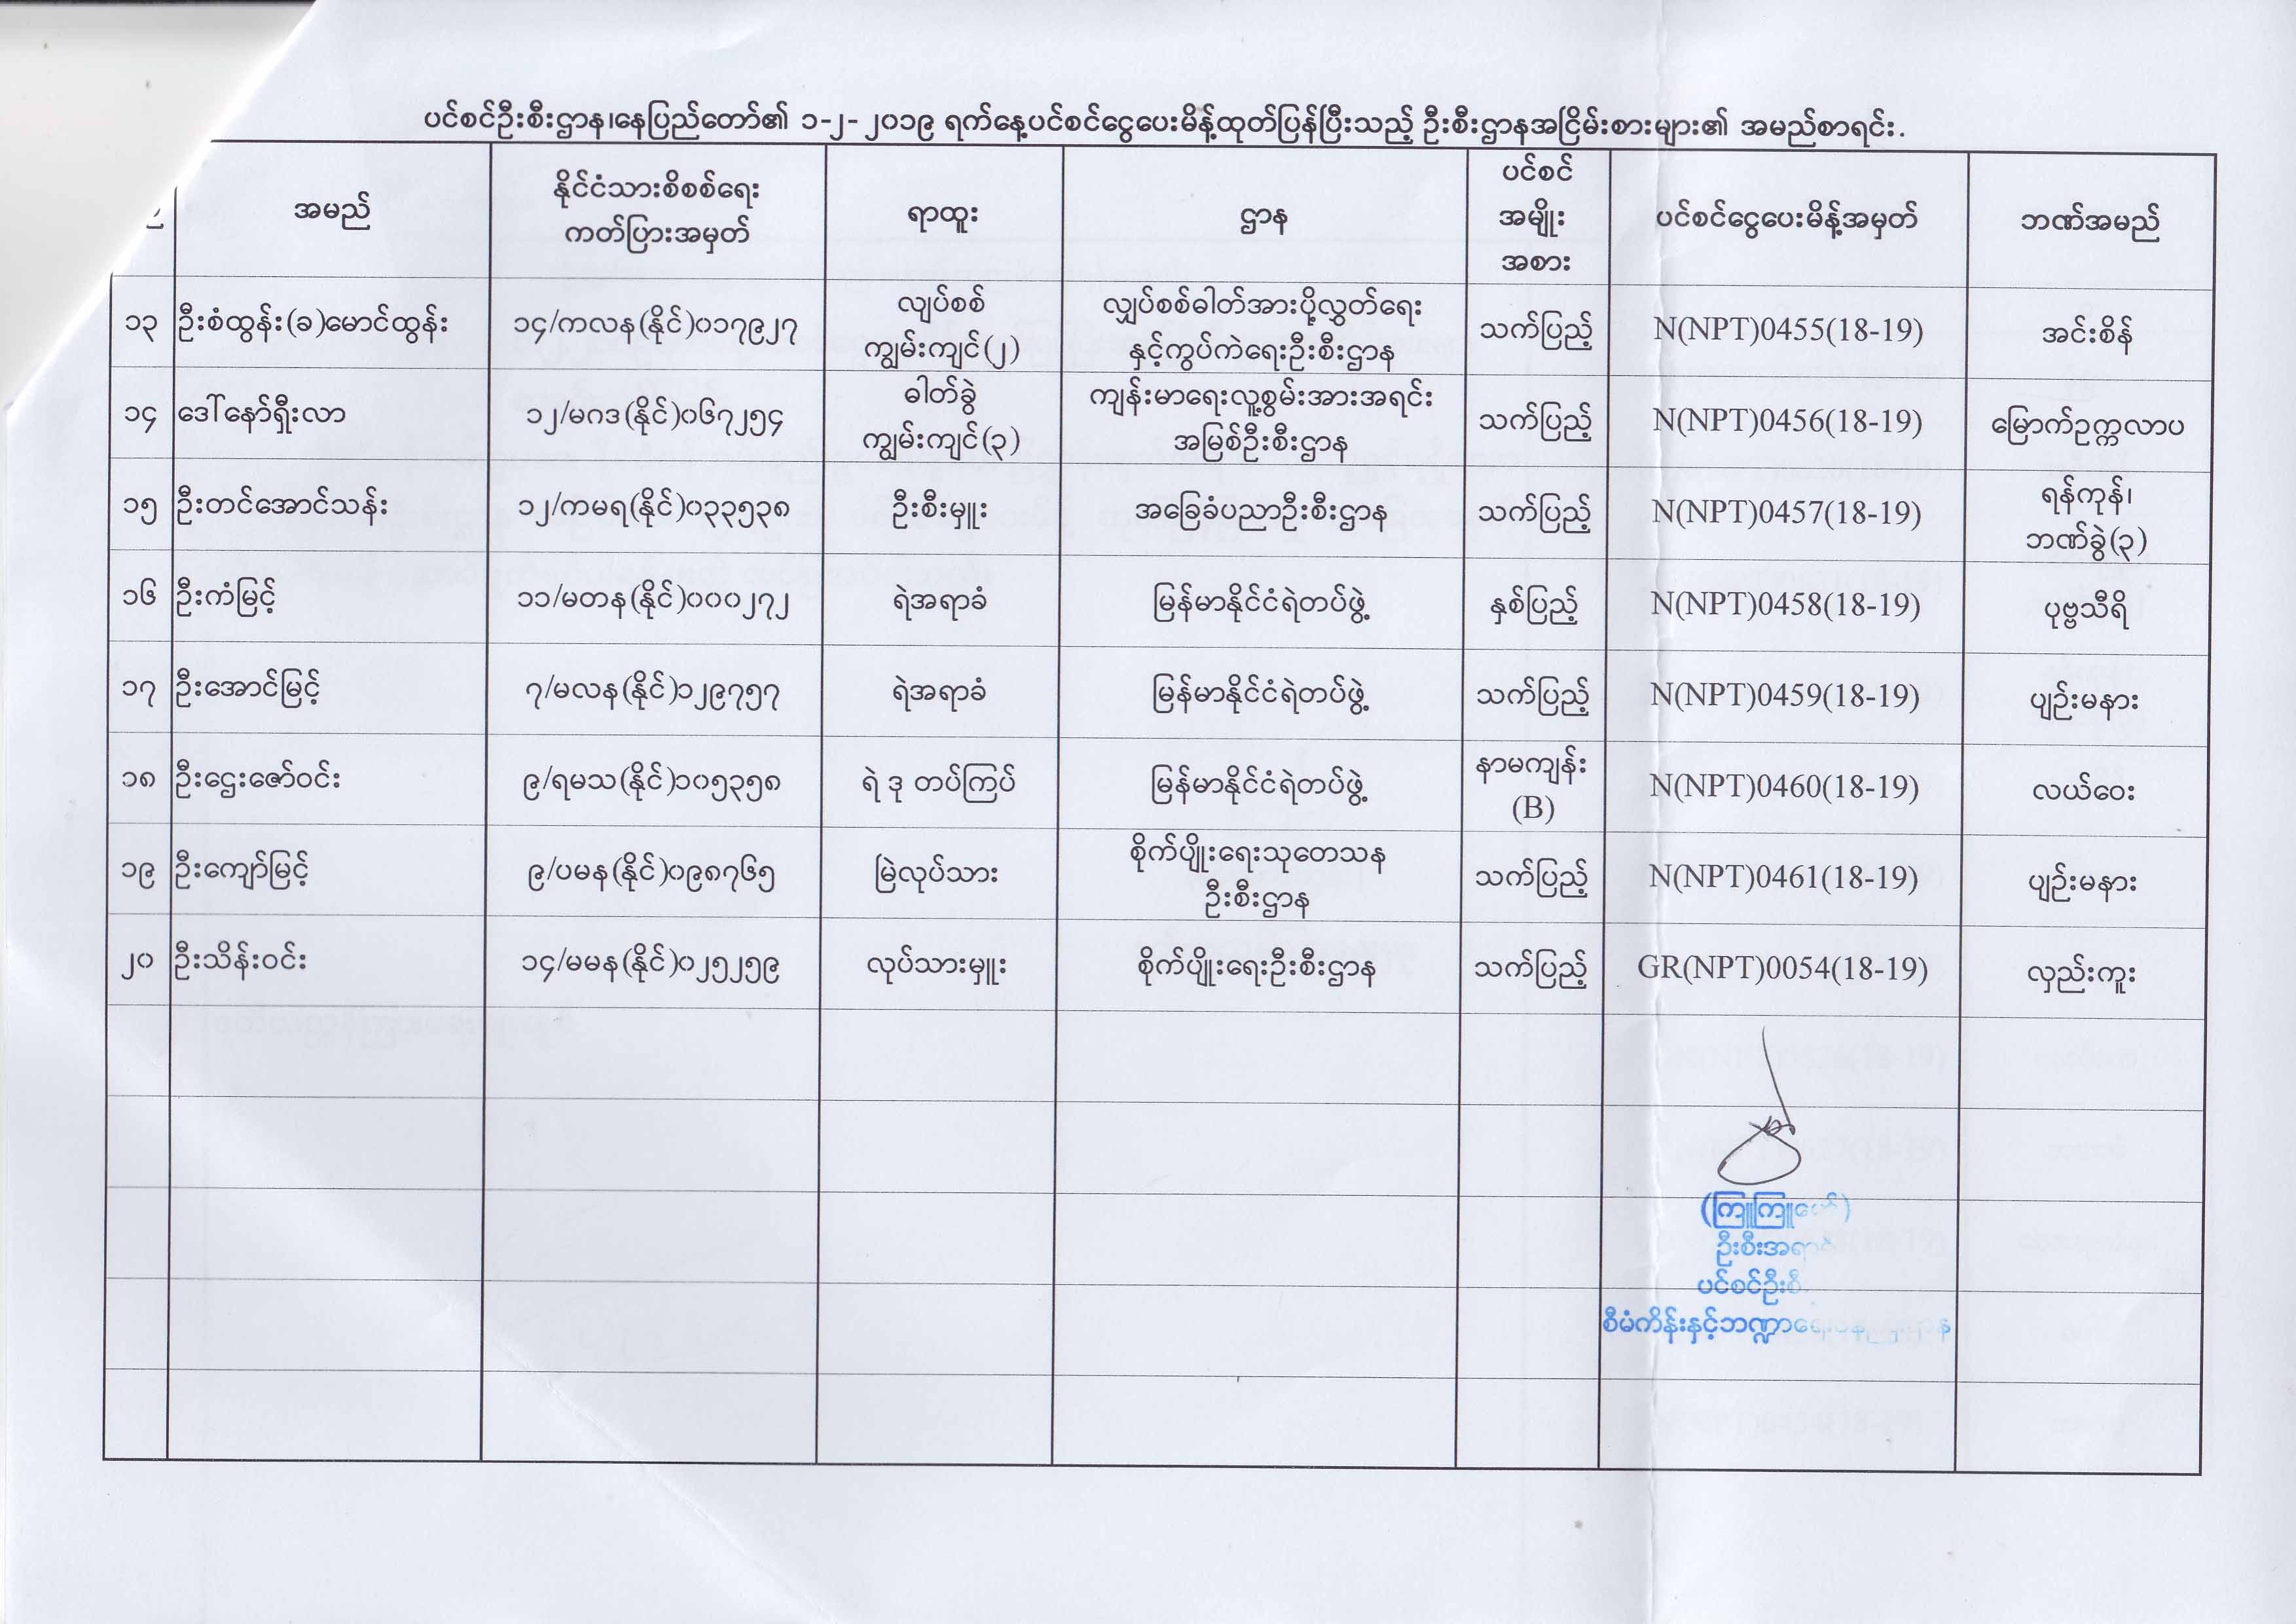 ပင်စင်ဦးစီးဌာန၊နေပြည်တော်၏ ၁-၂-၂၀၁၉ ရက်နေ့ပင်စင်ငွေပေးမိန့်ထုတ်ပြန်ပြီးသည့် ဦးစီးဌာနအငြိမ်းစားများ၏ အမည်စာရင်း.
အမည် နိုင်ငံသားစိစစ်ရေး ကတ်ပြားအမှတ် ရာထူး ဌာန ပင်စင် အမျိုး အစား ပင်စင်ငွေပေးမိန့်အမှတ် ဘဏ်အမည်
၁၃ ဦးစံထွန်း(ခ)မောင်ထွန်း ၁၄/ကလန(နိုင်)၀၁၇၉၂၇ လျပ်စစ် ကျွမ်းကျင်(၂) လျှပ်စစ်ဓါတ်အားပို့လွှတ်ရေး နှင့်ကွပ်ကဲရေးဦးစီးဌာန သက်ပြည့် N(NPT)0455(18-19) အင်းစိန်
၁၄ ဒေါ်နော်ရှီးလာ ၁၂/မဂဒ(နိုင်)၀၆၇၂၅၄ ဓါတ်ခွဲ ကျွမ်းကျင်(၃) ကျန်းမာရေးလူ့စွမ်းအားအရင်း အမြစ်ဦးစီးဌာန သက်ပြည့် N(NPT)0456(18-19) မြောက်ဥက္ကလာပ
၁၅ ဦးတင်အောင်သန်း ၁၂/ကမရ(နိုင်)၀၃၃၅၃၈ ဦးစီးမှူး အခြေခံပညာဦးစီးဌာန သက်ပြည့် N(NPT)0457(18-19) ရန်ကုန်၊ ဘဏ်ခွဲ(၃)
၁၆ ဦးကံမြင့် ၁၁/မတန(နိုင်)၀၀၀၂၇၂ ရဲအရာခံ မြန်မာနိုင်ငံရဲတပ်ဖွဲ့ နှစ်ပြည့် N(NPT)0458(18-19) ပုဗ္ဗသီရိ
၁၇ ဦးအောင်မြင့် ၇/မလန(နိုင်)၁၂၉၇၅၇ ရဲအရာခံ မြန်မာနိုင်ငံရဲတပ်ဖွဲ့ သက်ပြည့် N(NPT)0459(18-19) ပျဉ်းမနား
၁၈ ဦးဌေးဇော်ဝင်း ၉/ရမသ(နိုင်)၁၀၅၃၅၈ ရဲ ဒု တပ်ကြပ် မြန်မာနိုင်ငံရဲတပ်ဖွဲ့ နာမကျန်း (B) N(NPT)0460(18-19) လယ်ဝေး
၁၉ ဦးကျော်မြင့် ၉/ပမန(နိုင်)၀၉၈၇၆၅ မြဲလုပ်သား စိုက်ပျိုးရေးသုတေသန ဦးစီးဌာန သက်ပြည့် N(NPT)0461(18-19) ပျဉ်းမနား
၂၀ ဦးသိန်းဝင်း ၁၄/မမန(နိုင်)၀၂၅၂၅၉ လုပ်သားမှူး စိုက်ပျိုးရေးဦးစီးဌာန သက်ပြည့် GR(NPT)0054(18-19) လှည်းကူး
စီမံကိန်းနှင့်ဘဏ္ဍာ